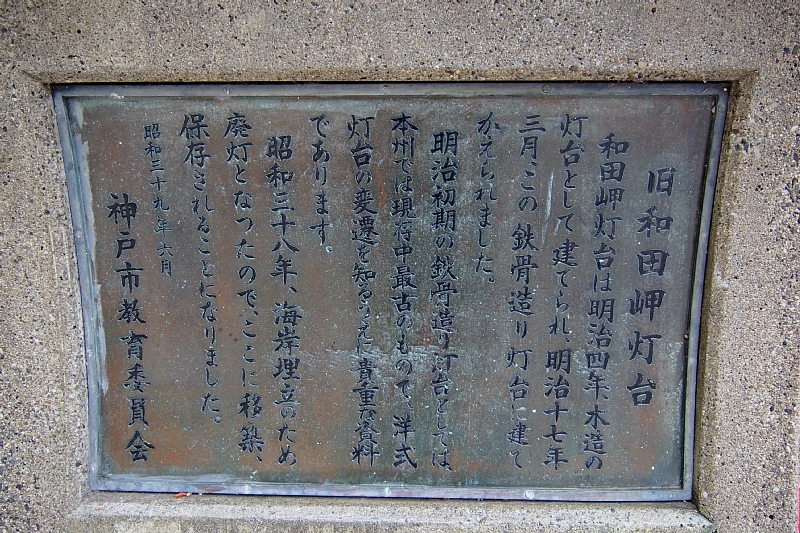 旧和田岬灯台
和田岬灯台は明治四年、木造の
灯台として建てられ、明治十七年
三月、この鉄骨造り灯台に建て
かえられました。
明治初期の鉄骨造り灯台としては、
本州では現存中最古のもので、洋式
灯台の変遷を知るうえに貴重な資料
であります。
昭和三十八年、海岸埋立のため
廃灯となつたので、ここに移築、
保存されることになりました。
昭和三十九年六月
神戸市教育委員会